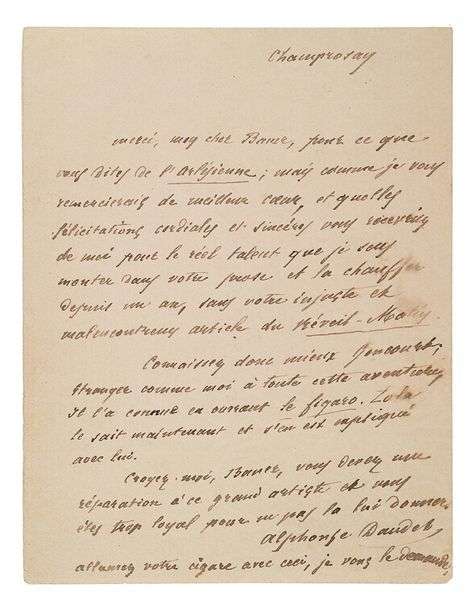 Champrosay
merci, mon cher Bauer, pour ce que
vous dites de l'Arlésienne ; mais comme je vous
remercierais de meilleur cœur, et quelles
félicitations cordiales et sincères vous recevriez
de moi pour le réel talent que je sens
monter dans votre prose et la chauffer
depuis un an, sans votre injuste et
malencontreux article du Réveil-Matin.
Connaissez donc mieux Goncourt,
étranger comme moi à toute cette aventure,
Il l'a connue en ouvrant le figaro. Zola
le sait maintenant et s'en est expliqué
avec lui.
Croyez-moi, Bauer, vous devez une
réparation à ce grand artiste et vous
êtes trop loyal pour ne pas la lui donner.
Alphonse Daudet
allumez votre cigare avec ceci, je vous le demande,